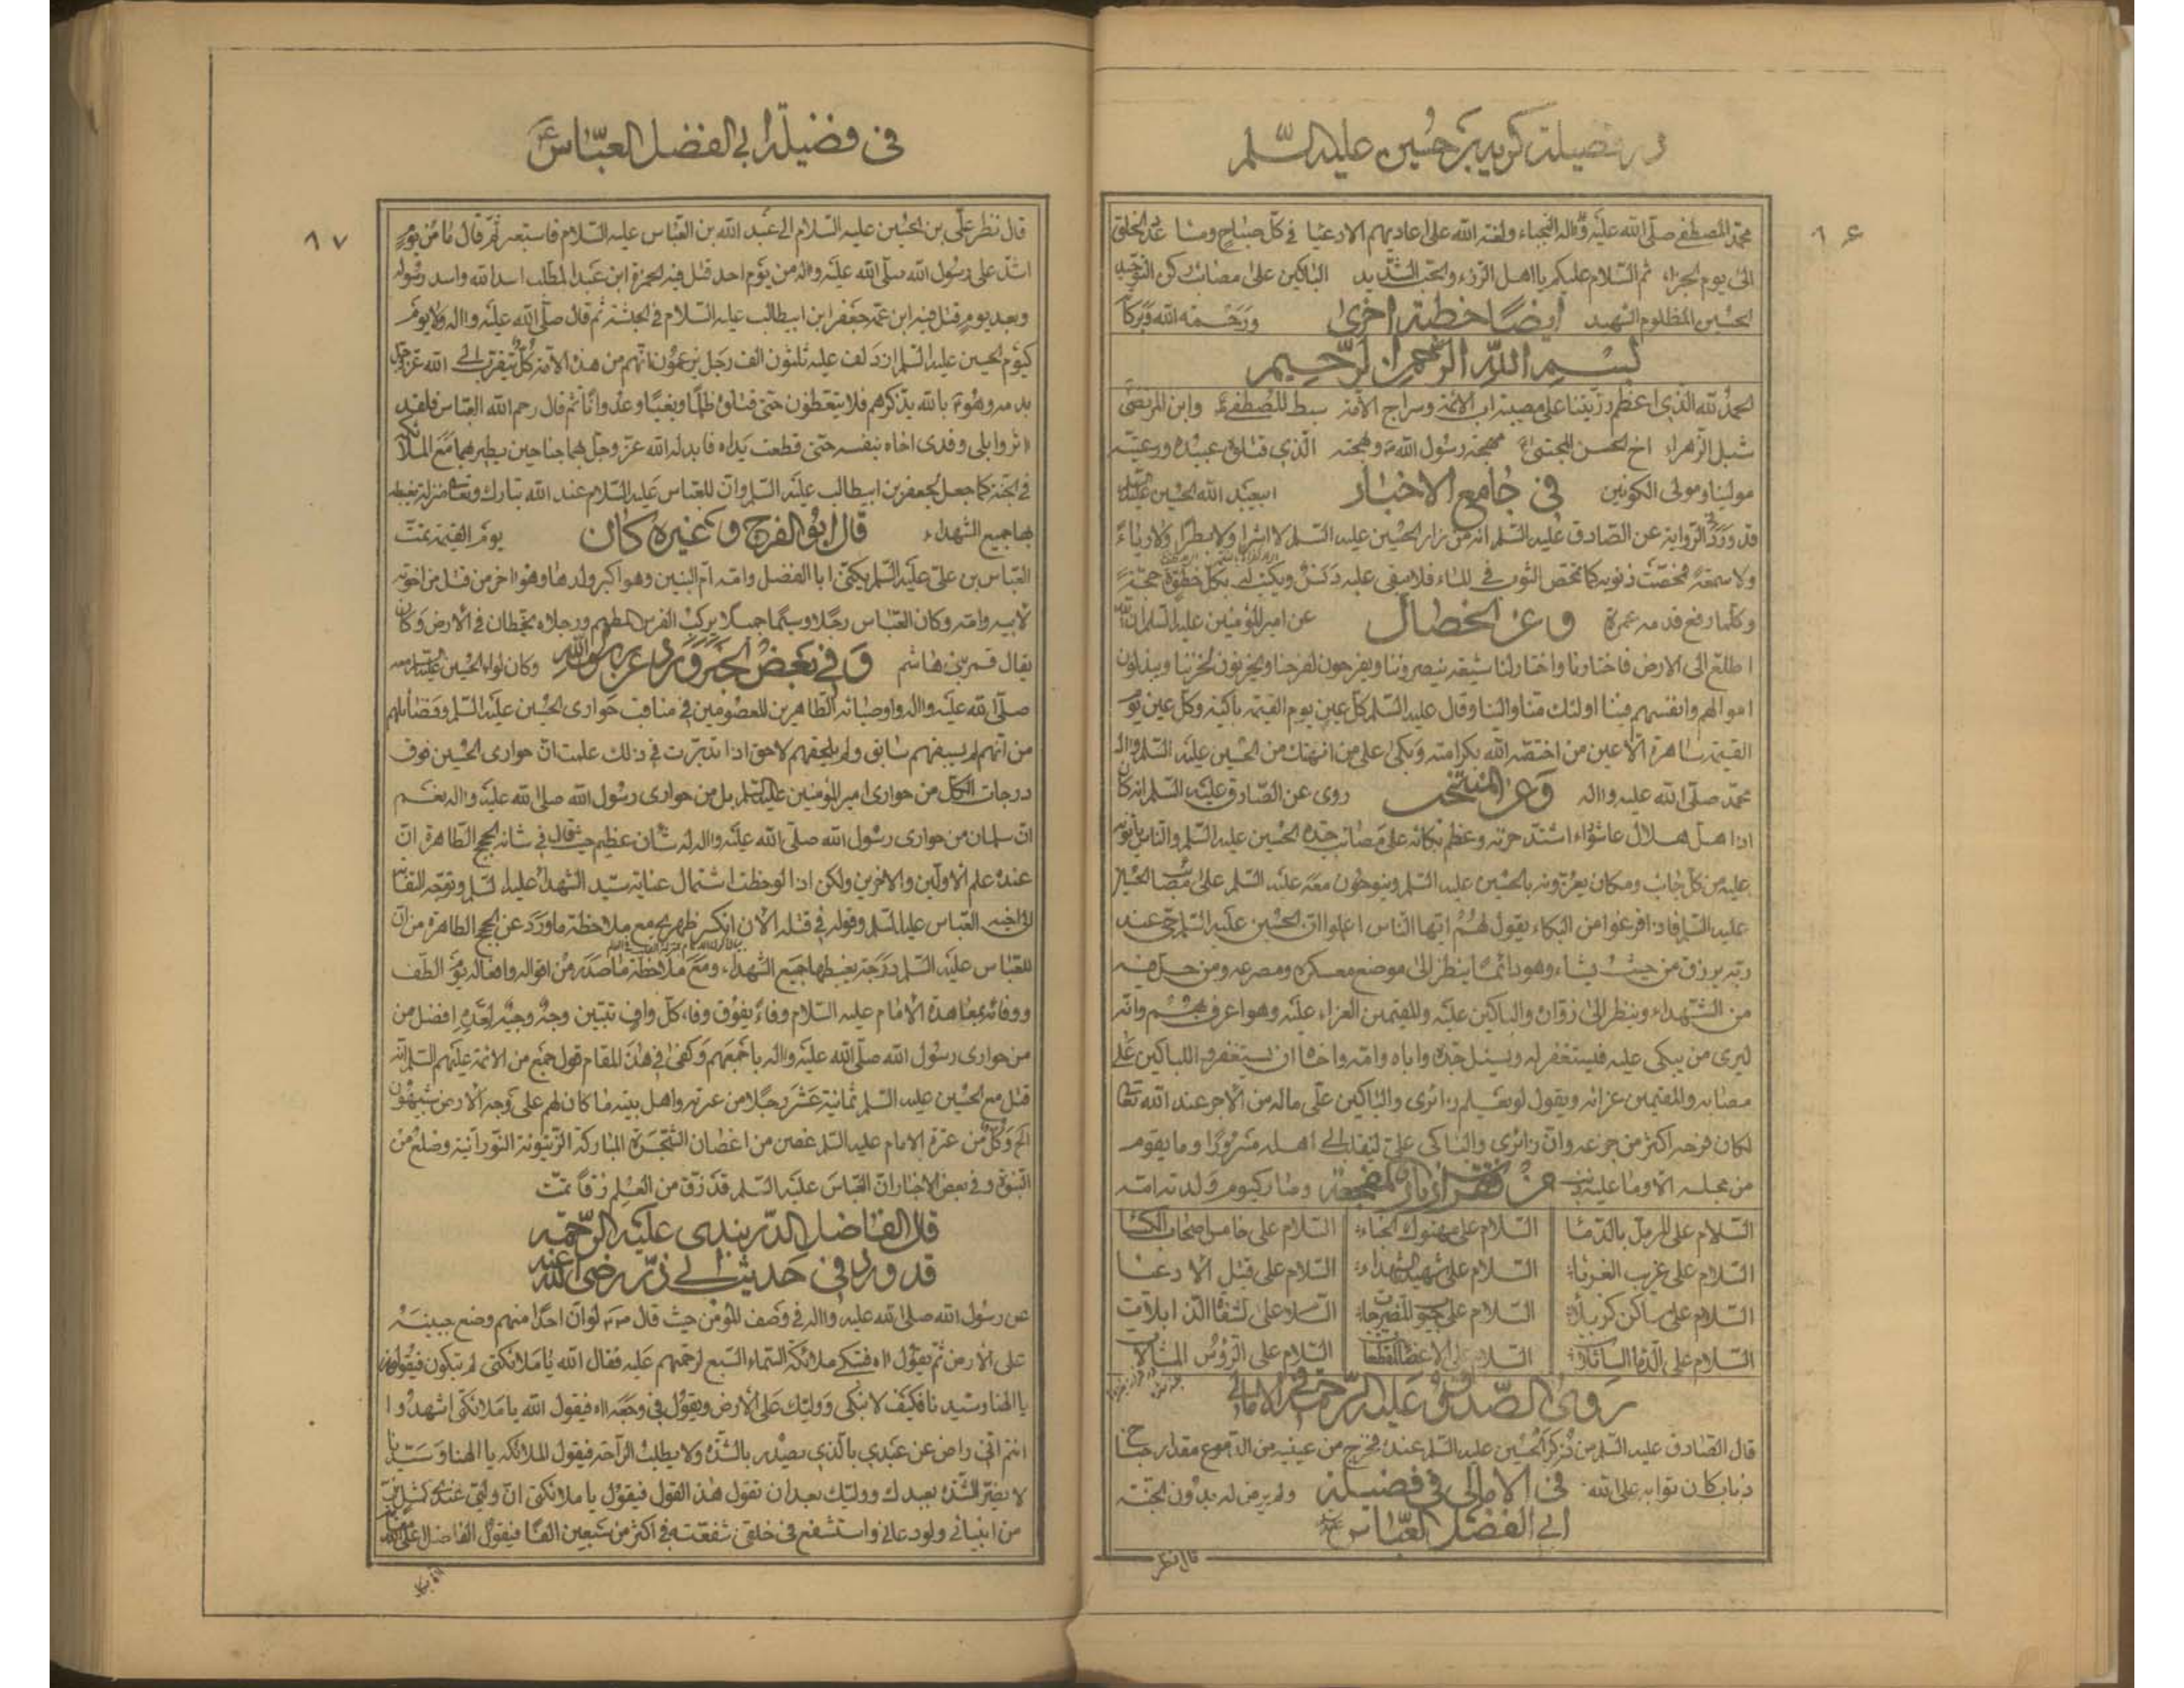 در فضیلة کریه بر حسین علیه السّلم
۸۶
محمّد المصطفی صلّی الله علیه وآله النجباء ولعنة الله علی اعادیهم الادعیا فی کلّ صباح ومسا عدد الخلق
الی یوم الجزاء ثم السّلام علیکم یا اهل الرزء والحب الشّدید الباکین علی مصائب رکن التوحید
الحسین المظلوم الشهید ورحمة الله وبرکا
ایضًا خطبة اخری
بسم الله الرّحمن الرّحیم
الحمد لله الذی اعظم رزیتنا علی مصیبة اب الائمة وسراج الامة سبط المصطفی وابن المرتضی
شبل الزهراء اخ الحسن المجتبی مهجة رسول الله وبهجته الّذی قتلوه عبیده ورعیته
مولینا ومولی الکونین ابیعبد الله الحسین علیه السلم
فی جامع الاخبار
قد ورد فی الروایة عن الصّادق علیه السّلم انه من زار الحسین علیه السّلم لا اشرا ولا بطرا ولا ریاء
ولا سمعة محّصت ذنوبه کما تمحّص الثوب فی الماء فلا یبقی علیه دنس ویکتب له بکل خطوة حجّة
وکلّما رفع قدمه عمرة
وعن الخصال
عن امیر المؤمنین علیه السلم ان الله
اطلع الی الارض فاختارنا واختار لنا شیعة ینصروننا ویفرحون لفرحنا ویحزنون لحزننا ویبذلون
اموالهم وانفسهم فینا اولئک منّا والینا وقال علیه السّلم کلّ عین یوم القیمة باکیة وکلّ عین یوم
القیمة ساهرة الّا عین من اختصّه الله بکرامته وبکی علی من انتهک من الحسین علیه السّلم وآل
محمّد صلّی الله علیه وآله
وعن المنتخب
روی عن الصّادق علیه السّلم انه کان
اذا هلّ هلال عاشورا اشتدّ حزنه وعظم بکائه علی مصائب جدّه الحسین علیه السّلم والناس یأتون
علیه من کلّ جانب ومکان یعزّونه بالحسین علیه السّلم وینوحون معه علیه السّلم علی مصاب الحسین
علیه السّلم فاذا فرغوا من البکاء یقول لهم ایّها النّاس اعلموا انّ الحسین علیه السّلم حیّ عند
ربّه یرزق من حیث یشاء وهو دائمًا ینظر الی موضع معسکره ومصرعه ومن حلّ فیه
من الشّهداء وینظر الی زوّاره والباکین علیه والمقیمین العزاء علیه وهو اعرف بهم وانّه
لیری من یبکی علیه فیستغفر له ویسئل جدّه واباه وامّه واخاه ان یستغفروا للباکین علی
مصابه والمقیمین عزائه ویقول لو یعلم زائری والباکین علیّ ماله من الاجر عند الله تعا
لکان فرحه اکثر من جزعه وانّ زائری والباکی علیّ لینقلب الی اهله مسرورًا وما یقوم
من مجلسه الّا وما علیه ذنب وصار کیوم ولدته امّه
من فقرات زیارة المفجعة
السّلام علی المرمّل بالدّماء السّلام علی مهتوک الخباء السّلام علی خامس اصحاب الکساء
السّلام علی غریب الغرباء السّلام علی شهید الشهداء السّلام علی قتیل الادعیا
السّلام علی ساکن کربلا السّلام علی الجیوب المضرجات السّلام علی الشفاه الذابلات
السّلام علی الدّماء السائلات السّلام علی الاعضاء المقطعات السّلام علی الرّؤس المشالات
روی الصّدوق علیه الرّحمة فی الامالی
قال الصّادق علیه السّلم من ذکر الحسین علیه السّلم عنده فخرج من عینیه من الدّموع مقدار جناح
ذباب کان ثوابه علی الله ولم یرض له بدون الجنّة
فی الامالی فی فضیلة
ابی الفضل العبّاس
قال نظر
فی فضیلة ابی الفضل العبّاس ع
۸۷
قال نظر علیّ بن الحسین علیه السّلام الی عبید الله بن العبّاس علیه السّلام فاستعبر ثم قال ما من یوم
اشدّ علی رسول الله صلّی الله علیه وآله من یوم احد قتل فیه الحمزة ابن عبد المطّلب اسد الله واسد رسوله
وبعد یوم قتل فیه ابن عمّه جعفر ابن ابیطالب علیه السّلام فی الجنّة ثم قال صلّی الله علیه وآله ولا یوم
کیوم الحسین علیه السّلم ازدلف علیه ثلثون الف رجل یزعمون انهم من هذه الامة کلّ یتقرب الی الله عزّ وجلّ
بدمه وهو بالله یذکرهم فلا یتعظون حتّی قتلوه ظلمًا وبغیًا وعدوانًا ثم قال رحم الله العبّاس فلقد
اثر وابلی وفدی اخاه بنفسه حتّی قطعت یداه فابدله الله عزّ وجلّ بهما جناحین یطیر بهما مع الملائکة
فی الجنّة کما جعل لجعفر بن ابیطالب علیه السّلم وانّ للعبّاس علیه السّلام عند الله تبارک وتعا منزلة یغبطه
بها جمیع الشهداء یوم القیمة تمّت
قال ابو الفرج وغیره کان
العبّاس بن علیّ علیه السّلم یکنّی ابا الفضل وامّه امّ البنین وهو اکبر ولدها وهو اخر من قتل من اخوته
لابیه وامّه وکان العبّاس رجلًا وسیمًا جمیلًا یرکب الفرس المطهم ورجلاه یخطان فی الارض وکان
یقال قمر بنی هاشم وکان لواء الحسین علیه السلم معه
وفی بعض الخبر ورد عن رسول الله
صلّی الله علیه وآله واوصیائه الطّاهرین المعصومین فی مناقب حواری الحسین علیه السّلم وفضائلهم
من انّهم لم یسبقهم سابق ولم یلحقهم لاحق اذا تدبّرت فی ذلک علمت انّ حواری الحسین فوق
درجات الکلّ من حواری امیر المؤمنین علیه السلم بل من حواری رسول الله صلی الله علیه وآله نعم
انّ سلمان من حواری رسول الله صلّی الله علیه وآله له شان عظیم حیث قال فی شانه الحجج الطّاهرة انّ
عنده علم الاولین والاخرین ولکن اذا لوحظت اشتمال عنایة سیّد الشهداء علیه السّلم وتوجّه التفا
الی اخیه العبّاس علیه السّلم وقوله فی قتله الان انکسر ظهری مع ملاحظة ما ورد عن الحجج الطاهرة من ان
للعبّاس علیه السّلم درجة یغبطها جمیع الشهداء ومع ملاحظة ما صدر من اقواله وافعاله یوم الطّف
ووفائه بمعاهدة الامام علیه السّلام وفاءً یفوق وفاء کلّ واف تبیّن وجه وجیه لعدّه افضل من
من حواری رسول الله صلّی الله علیه وآله باجمعهم وکفی فی هذا المقام قول جمع من الائمة علیهم السّلم انّه
قتل مع الحسین علیه السّلم ثمانیة عشر رجلًا من عترته واهل بیته ما کان لهم علی وجه الارض شبیهون
الخ وکلّ من عترة الامام علیه السّلم غصن من اغصان الشّجرة المبارکة الزّیتونة النّورانیّة وضلع من
النبوّة وفی بعض الاخبار انّ العبّاس علیه السّلم قد زقّ من العلم زقًا تمّت
قال الفاضل الدّربندی علیه الرّحمة
قد ورد فی حدیث ابی ذرّ رضی الله عنه
عن رسول الله صلی الله علیه وآله فی وصف المؤمن حیث قال لو انّ احدًا منهم وضع جبینه
علی الارض ثم یقول اه فتبکی ملائکة السّماء السّبع لرحمتهم علیه فقال الله یا ملائکتی لم تبکون فیقولون
یا الهنا وسیّدنا فکیف لا نبکی وولیّک علی الارض ویقول فی وجعه اه فیقول الله یا ملائکتی اشهدوا
انتم انّی راض عن عبدی بالّذی یصبر بالشّدّة ولا یطلب الرّاحة فیقول الملائکة یا الهنا وسیّدنا
لا یضرّ الشّدّة بعبدک وولیّک بعد ان تقول هذا القول فیقول یا ملائکتی انّ ولیّی عندی کمثل نبیّ
من انبیائی ولو دعانی واستشفع فی خلقی شفعته فی اکثر من سبعین الفًا فیقول الفاضل علیه